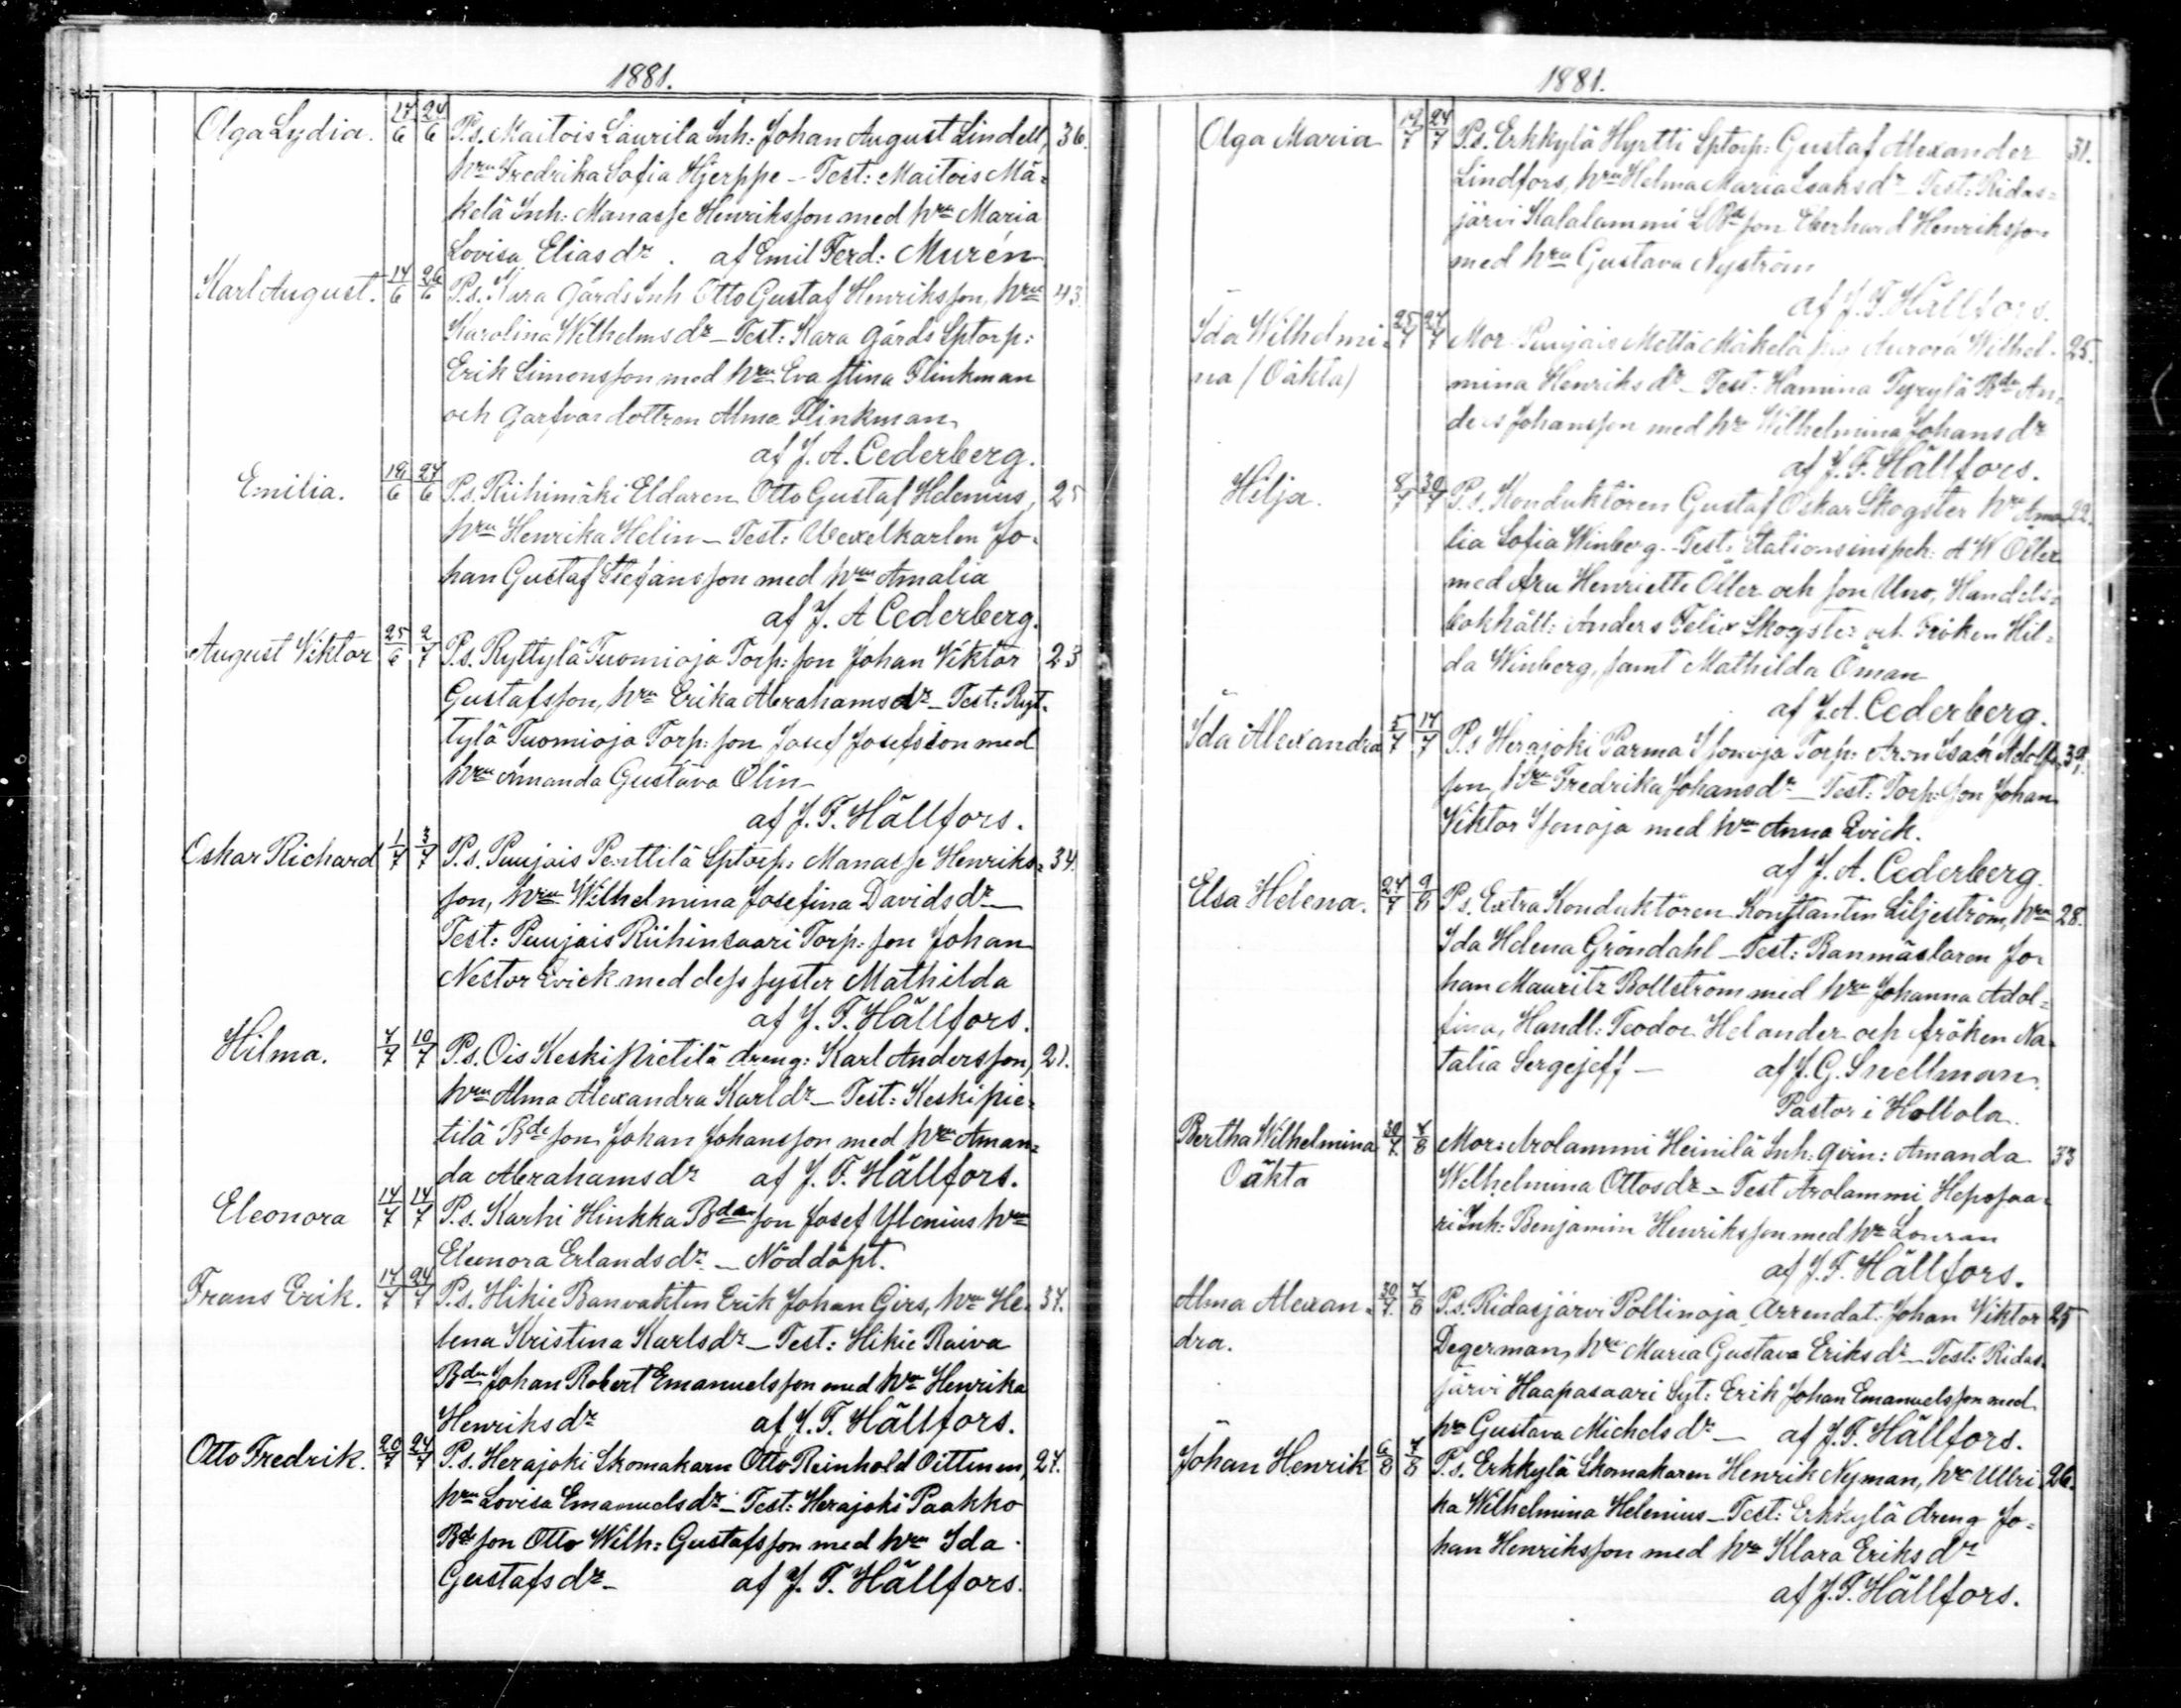 1881.
Olga Lydia. 17/6 24/6 P.s. Maitois Laurila Inh: Johan August Lindell, 36.
hru Fredrika Sofia Hjerppe – Test: Maitois Mä-
kelä Inh: Manasse Henriksson med hru Maria
Lovisa Eliasdr. af Emil Ferd: Murén
Karl August. 14/6 26/6 P.s. Kara Gårds Inh Otto Gustaf Henriksson, hru 43.
Karolina Wilhelmsdr – Test: Kara gårds Sptorp:
Erik Simonsson med hru Eva Stina Flinkman
och Garfvardottren Alma Flinkman
af J. A. Cederberg.
Emilia. 19/6 27/6 P.s. Riihimäki Eldaren Otto Gustaf Helenius, 25
hru Henrika Helin – Test: Vexelkarlen Jo-
han Gustaf Stefansson med hru Amalia
af J. A Cederberg.
August Viktor 25/6 2/7 P.s. Ryttylä Tuomioja Torp: son Johan Viktor 23
Gustafsson, hru Erika Abrahamsdr – Test: Ryt-
tylä Tuomioja Torp: son Josef Josefsson med
hru Amanda Gustava Olin
af J. F. Hällfors.
Oskar Richard 1/7 3/7 P.s. Puujais Penttilä Sptorp: Manasse Henriks- 34.
son, hru Wilhelmina Josefina Davidsdr –
Test: Puujais Riihinsaari Torp: son Johan
Nector Qvick med dess syster Mathilda
af J. F. Hällfors.
Hilma. 7/7 10/7 P.s. Ois Keskipietilä dreng: Karl Andersson, 21.
hru Alma Alexandra Karldr – Test: Keskipie-
tilä Bde son Johan Johansson med hru Aman-
da Abrahamsdr af J. F. Hällfors.
Eleonora 14/7 14/7 P.s. Karhi Hinkka Bde son Josef Ylenius hru
Eleonora Erlandsdr. – Nöddöpt.
Frans Erik. 17/7 24/7 P.s. Hikie Banvakten Erik Johan Girs, hru He- 37.
lena Kristina Karlsdr – Test: Hikie Raiva
Bden Johan Robert Emanuelsson med hru Henrika
Henriksdr af J. F. Hällfors.
Otto Fredrik. 20/7 24/7 P.s. Herajoki Skomakarn Otto Reinhold Oittinen, 27.
hru Lovisa Emanuelsdr – Test: Herajoki Paakko
Bde son Otto Wilh: Gustafsson med hru Ida
Gustafsdr – af J. F. Hällfors.
1881.
Olga Maria 19/7 24/7 P.s. Erkkylä Hyrtti Sptorp: Gustaf Alexander 31.
Lindfors, hru Helma Maria Isaksdr – Test: Ridas-
järvi Kalalammi son Eberhard Henriksson
med hru Gustava Nyström
af J. F. Hällfors.
Ida Wilhelmi- 25/7 27/7 Mor Puujais Mattä Mäkelä Aurora Wilhel- 25.
na (Oäkta) mina Henriksdr – Test: Hamina Tyrylä Bden An-
ders Johansson med hr Wilhelmina Johansdr
af J. F. Hällfors.
Hilja. 8/7 30/7 P.s. Konduktören Gustaf Oskar Skogster hru Ama- 22.
lia Sofia Winberg – Test: Stationsinspek: A W Öller
med fru Henriette Öller och son Uno, Handels-
bokhåll: Anders Felix Skogster och Fröken Hil-
da Winberg, samt Mathilda Öman
af J. A. Cederberg.
Ida Alexandra 5/7 17/7 P.s Herajoki Parma Isonoja Torp: Aron Isak Adolfs- 39.
son, hru Fredrika Johansdr – Test: Torp: son Johan
Viktor Isonoja med hru Anna Qvick.
af J. A. Cederberg.
Elsa Helena. 24/7 9/8 P.s. Extra Konduktören Konstantin Liljeström, hru 28.
Ida Helena Gröndahl – Test: Banmästaren Jo-
han Mauritz Bollström med hru Johanna Adol-
fina, Handl: Teodor Helander och fröken Na-
talia Sergejeff – af J. G. Snellman
Pastor i Hollola.
Bertha Wilhelmina 30/7 7/8 Mor: Arolammi Heinilä Inh: qvin: Amanda 33
Oäkta Wilhelmina Ottosdr – Test Arolammi Hepsaa-
ri Inh: Benjamin Henriksson med hru Louran
af J. F. Hällfors.
Alma Alexan- 30/7 7/8 P.s. Ridasjärvi Pollinoja Arrendat: Johan Viktor 25
dra. Degerman, hru Maria Gustava Eriksdr – Test: Ridas-
järvi Haapasaari Syt: Erik Johan Emanuelsson med
hru Gustava Michelsdr – af J. F. Hällfors.
Johan Henrik 6/8 7/8 P.s. Erkkylä Skomakaren Henrik Nyman, hru Ulri- 26.
ka Wilhelmina Helenius – Test: Erkkylä dreng Jo-
han Henriksson med hru Klara Eriksdr
af J. F. Hällfors.